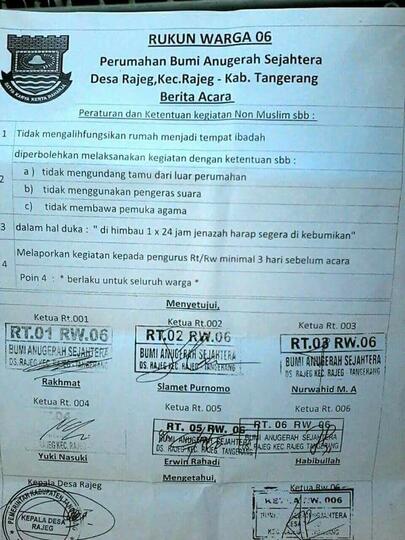 RUKUN WARGA 06
Perumahan Bumi Anugerah Sejahtera
Desa Rajeg,Kec.Rajeg - Kab. Tangerang
Berita Acara
SETYA KARYA KERTA RAHARJA
Peraturan dan Ketentuan kegiatan Non Muslim sbb :
1 Tidak mengalihfungsikan rumah menjadi tempat ibadah
diperbolehkan melaksanakan kegiatan dengan ketentuan sbb :
2 a ) tidak mengundang tamu dari luar perumahan
b) tidak menggunakan pengeras suara
c) tidak membawa pemuka agama
3 dalam hal duka : " di himbau 1 x 24 jam jenazah harap segera di kebumikan"
4 Melaporkan kegiatan kepada pengurus Rt/Rw minimal 3 hari sebelum acara
Poin 4 : * berlaku untuk seluruh warga *
Menyetujui,
Ketua Rt.001 Ketua Rt.002 Ketua Rt. 003
RT.01 RW.06 RT.02 RW.06 RT.03 RW.06
BUMI ANUGERAH SEJAHTERA BUMI ANUGERAH SEJAHTERA BUMI ANUGERAH SEJAHTERA
DS. RAJEG KEC. RAJEG - TANGERANG DS. RAJEG KEC. RAJEG - TANGERANG DS. RAJEG KEC. RAJEG - TANGERANG
Rakhmat Slamet Purnomo Nurwahid M. A
Ketua Rt. 004 Ketua Rt. 005 Ketua Rt. 006
RT. 05/RW. 06 RT. 06 RW. 06
BUMI ANUGERAH SEJAHTERA
Yuki Nasuki Erwin Rahadi Habibullah
Mengetahui,
Kepala Desa Rajeg Ketua Rw.06
PEMERINTAH KABUPATEN
KEPALA DESA
RAJEG
RW. 006